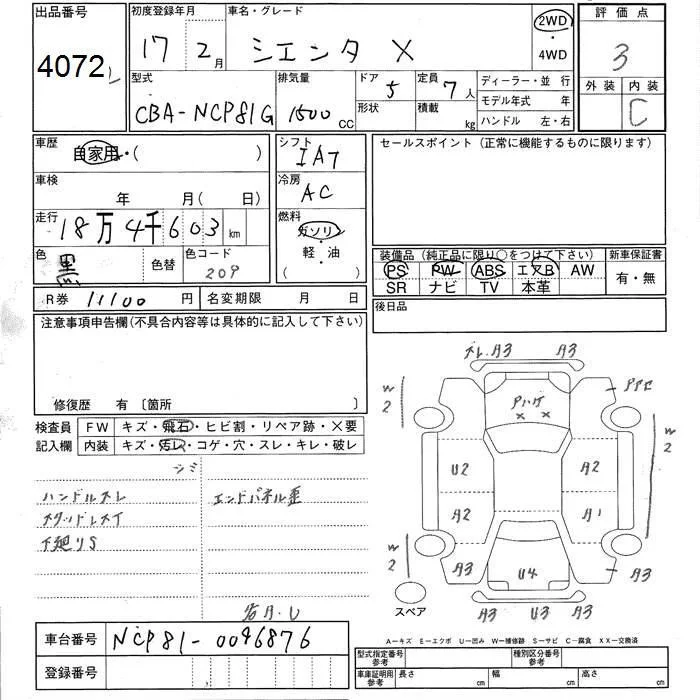 出品番号 初度登録年月 車名・グレード 2WD 評価点
4072 17 2月 シエンタ X ・ 4WD 3
型式 排気量 ドア 5 定員 7人 ディーラー・並 行 外装 内装
CBA-NCP81G 1500 CC 形状 積載 kg モデル年式 年 C
ハンドル 左・右
車歴 自家用・( ) シフト IA7 セールスポイント (正常に機能するものに限ります)
車検 年 月( 日) 冷房 AC
走行 18万4千603km 燃料 ガソリン
軽・油
色 黒 色替 色コード 209 装備品 (純正品に限り○をつけて下さい) 新車保証書
PS PW ABS エアB AW 有・無
SR ナビ TV 本革
R券 11100 円 名変期限 月 日 後日品
注意事項申告欄(不具合内容等は具体的に記入して下さい)
修復歴 有 〔箇所 〕
検査員 FW キズ・飛石・ヒビ割・リペア跡・×要
記入欄 内装 キズ・汚レ・コゲ・穴・スレ・キレ・破レ
シミ
ハンドルスレ エンドパネル歪
下廻りS
A3 A3
W2 W2
U2 A2
A2 A1
W2 W2
A3 U4 A3
スペア A3 U3 A3
車台番号 NCP81-0096876
A−キズ E−エクボ U−凹み W−補修跡 S−サビ C−腐食 XX−交換済
登録番号
型式指定番号 参考 種別区分番号 参考
車庫証明用 参考 長さ cm 幅 cm 高さ cm